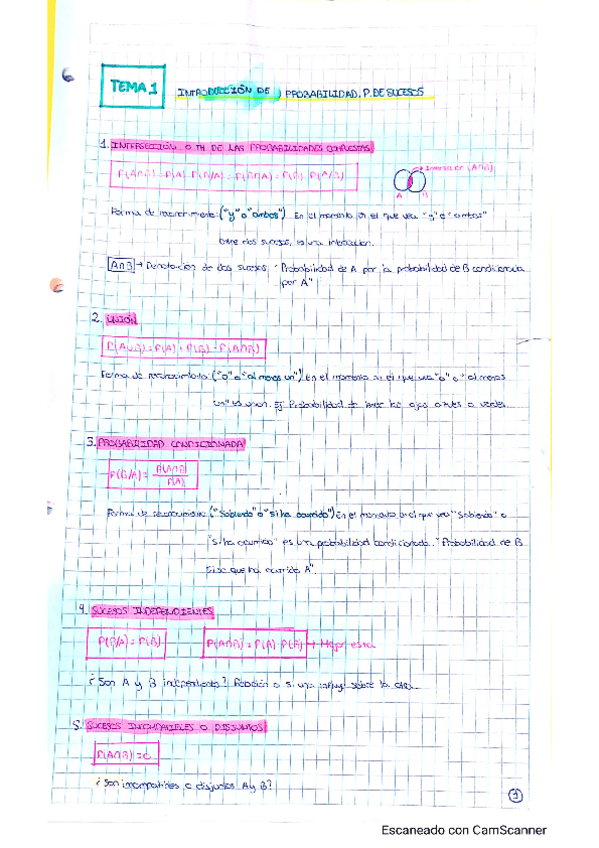 TEMA 1
INTRODUCCIÓN DE PROBABILIDAD. P. DE SUCESOS
1. INTERSECCIÓN O TH DE LAS PROBABILIDADES COMPUESTAS
P(A∩B) = P(A) · P(B/A) = P(B∩A) = P(B) · P(A/B)
Intersección (A∩B)
A B
Forma de reconocimiento: ("y" o "ambos") En el momento en el que vea "y" o "ambos"
entre dos sucesos, es una intersección.
A∩B → Denotación de dos sucesos, "Probabilidad de A por la probabilidad de B condicionada
por A"
2. UNIÓN
P(A∪B) = P(A) + P(B) - P(A∩B)
Forma de reconocimiento: ("o" o "al menos un") En el momento en el que vea "o" o "al menos
un" es unión. Ej: Probabilidad de tener los ojos azules o verdes.
3. PROBABILIDAD CONDICIONADA
P(B/A) = P(A∩B) / P(A)
Forma de reconocimiento: ("Sabiendo" o "si ha ocurrido") En el momento en el que vea "Sabiendo" o
"si ha ocurrido" es una probabilidad condicionada. "Probabilidad de B
si se que ha ocurrido A".
4. SUCESOS INDEPENDIENTES
P(B/A) = P(B)
P(A∩B) = P(A) · P(B) → Mejor esta
¿Son A y B independientes? Relación o si una influye sobre la otra.
5. SUCESOS INCOMPATIBLES O DISJUNTOS
P(A∩B) = 0
¿Son incompatibles o disjuntos A y B?
1
Escaneado con CamScanner